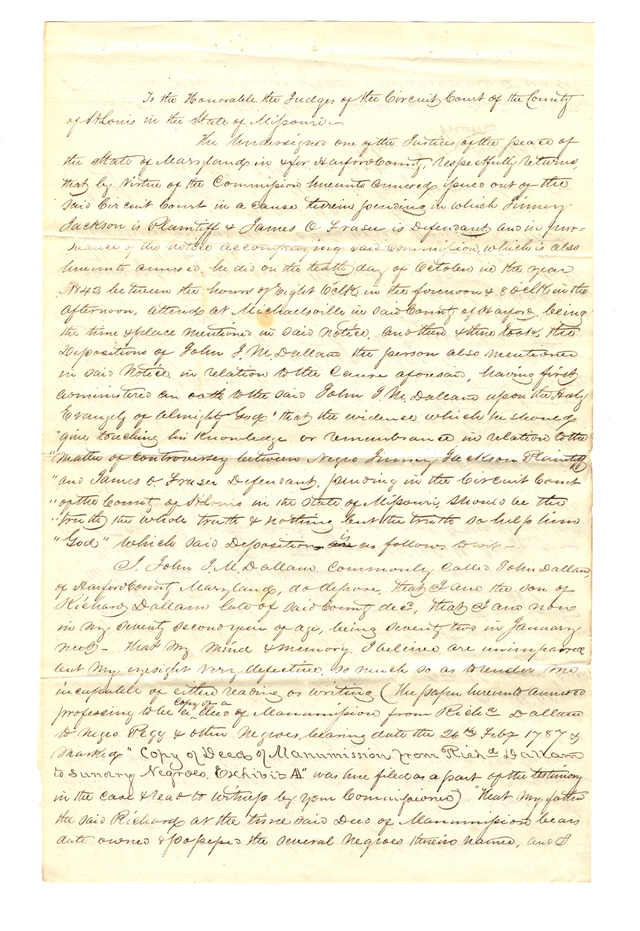 To the Honorable the Judges of the Circuit Court of the County
of St Louis in the State of Missouri
The Undersigned one of the Justices of the peace of
the State of Maryland in & for Harford County, respectfully returns,
that by Virtue of the Commission hereunto annexed issued out of the
said Circuit Court in a cause therein pending in which Jinney
Jackson is Plaintiff & James O Fraser is Defendant and in pur-
suance of the notice accompanying said Commission, which is also
hereunto annexed, he did on the tenth day of October in the year
1842 between the hours of Eight OClk in the forenoon & 8 oClk in the
afternoon, attend at Michaelsville in said County of Harford, being
the time & place mentioned in said Notice, and then & there took the
Depositions of John J. M. Dallam the person also mentioned
in said Notice in relation to the Cause aforesaid, having first
administered an oath to the said John J M Dallam upon the Holy
Evangely of Almighty God "that the evidence which he should
"give touching his Knowledge or remembrance in relation to the
"matter of controversy between Negro Jinney Jackson Plaintiff
"and James O Fraser Defendant, pending in the Circuit Court
"of the County of St Louis in the State of Missouri, should be the
"truth, the whole truth & nothing but the truth so help him
"God" which said Deposition is as follows to wit -
I, John J. M. Dallam, Commonly called John Dallam,
of Harford County Maryland, do depose, that I am the son of
Richard Dallam late of said County decd, that I am now
in my seventy second year of age, being seventy two in January
next - that my mind & memory, I believe are unimpaired
but my eyesight very defective, so much so as to render me
incapable of either reading or writing (The paper hereunto annexed
professing to be a copy of a deed of Manumission from Richd Dallam
to Negro Pegg & other Negroes, bearing date the 26th Feby 1787 &
marked "Copy of Deed of Manumission from Richd Dallam
to sundry Negroes, Exhibit A" was here filed as a part of the testimony
in the case & read to witness by your Commissioner) "That my father
the said Richard at the time said Deed of Manumission bears
date owned & possessed the several Negroes therein named, and I